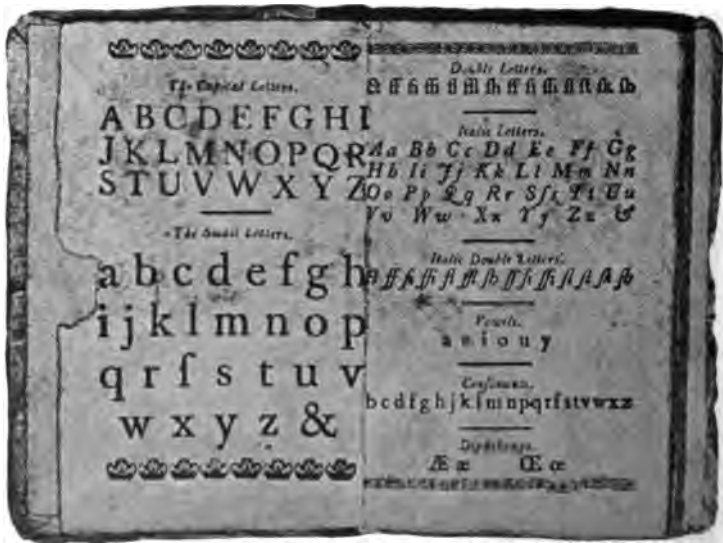 The Capital Letters.
A B C D E F G H I
J K L M N O P Q R
S T U V W X Y Z
The Small Letters.
a b c d e f g h
i j k l m n o p
q r ſ s t u v
w x y z &
Double Letters.
Italic Letters.
Aa Bb Cc Dd Ee Ff Gg
Hh Ii Jj Kk Ll Mm Nn
Oo Pp Qq Rr Sſs Tt Uu
Vv Ww Xx Yy Zz &
Italic Double Letters.
Vowels.
a e i o u y
Conſonants.
b c d f g h j k l m n p q r ſ s t v w x z
Dipthongs.
Æ æ Œ œ